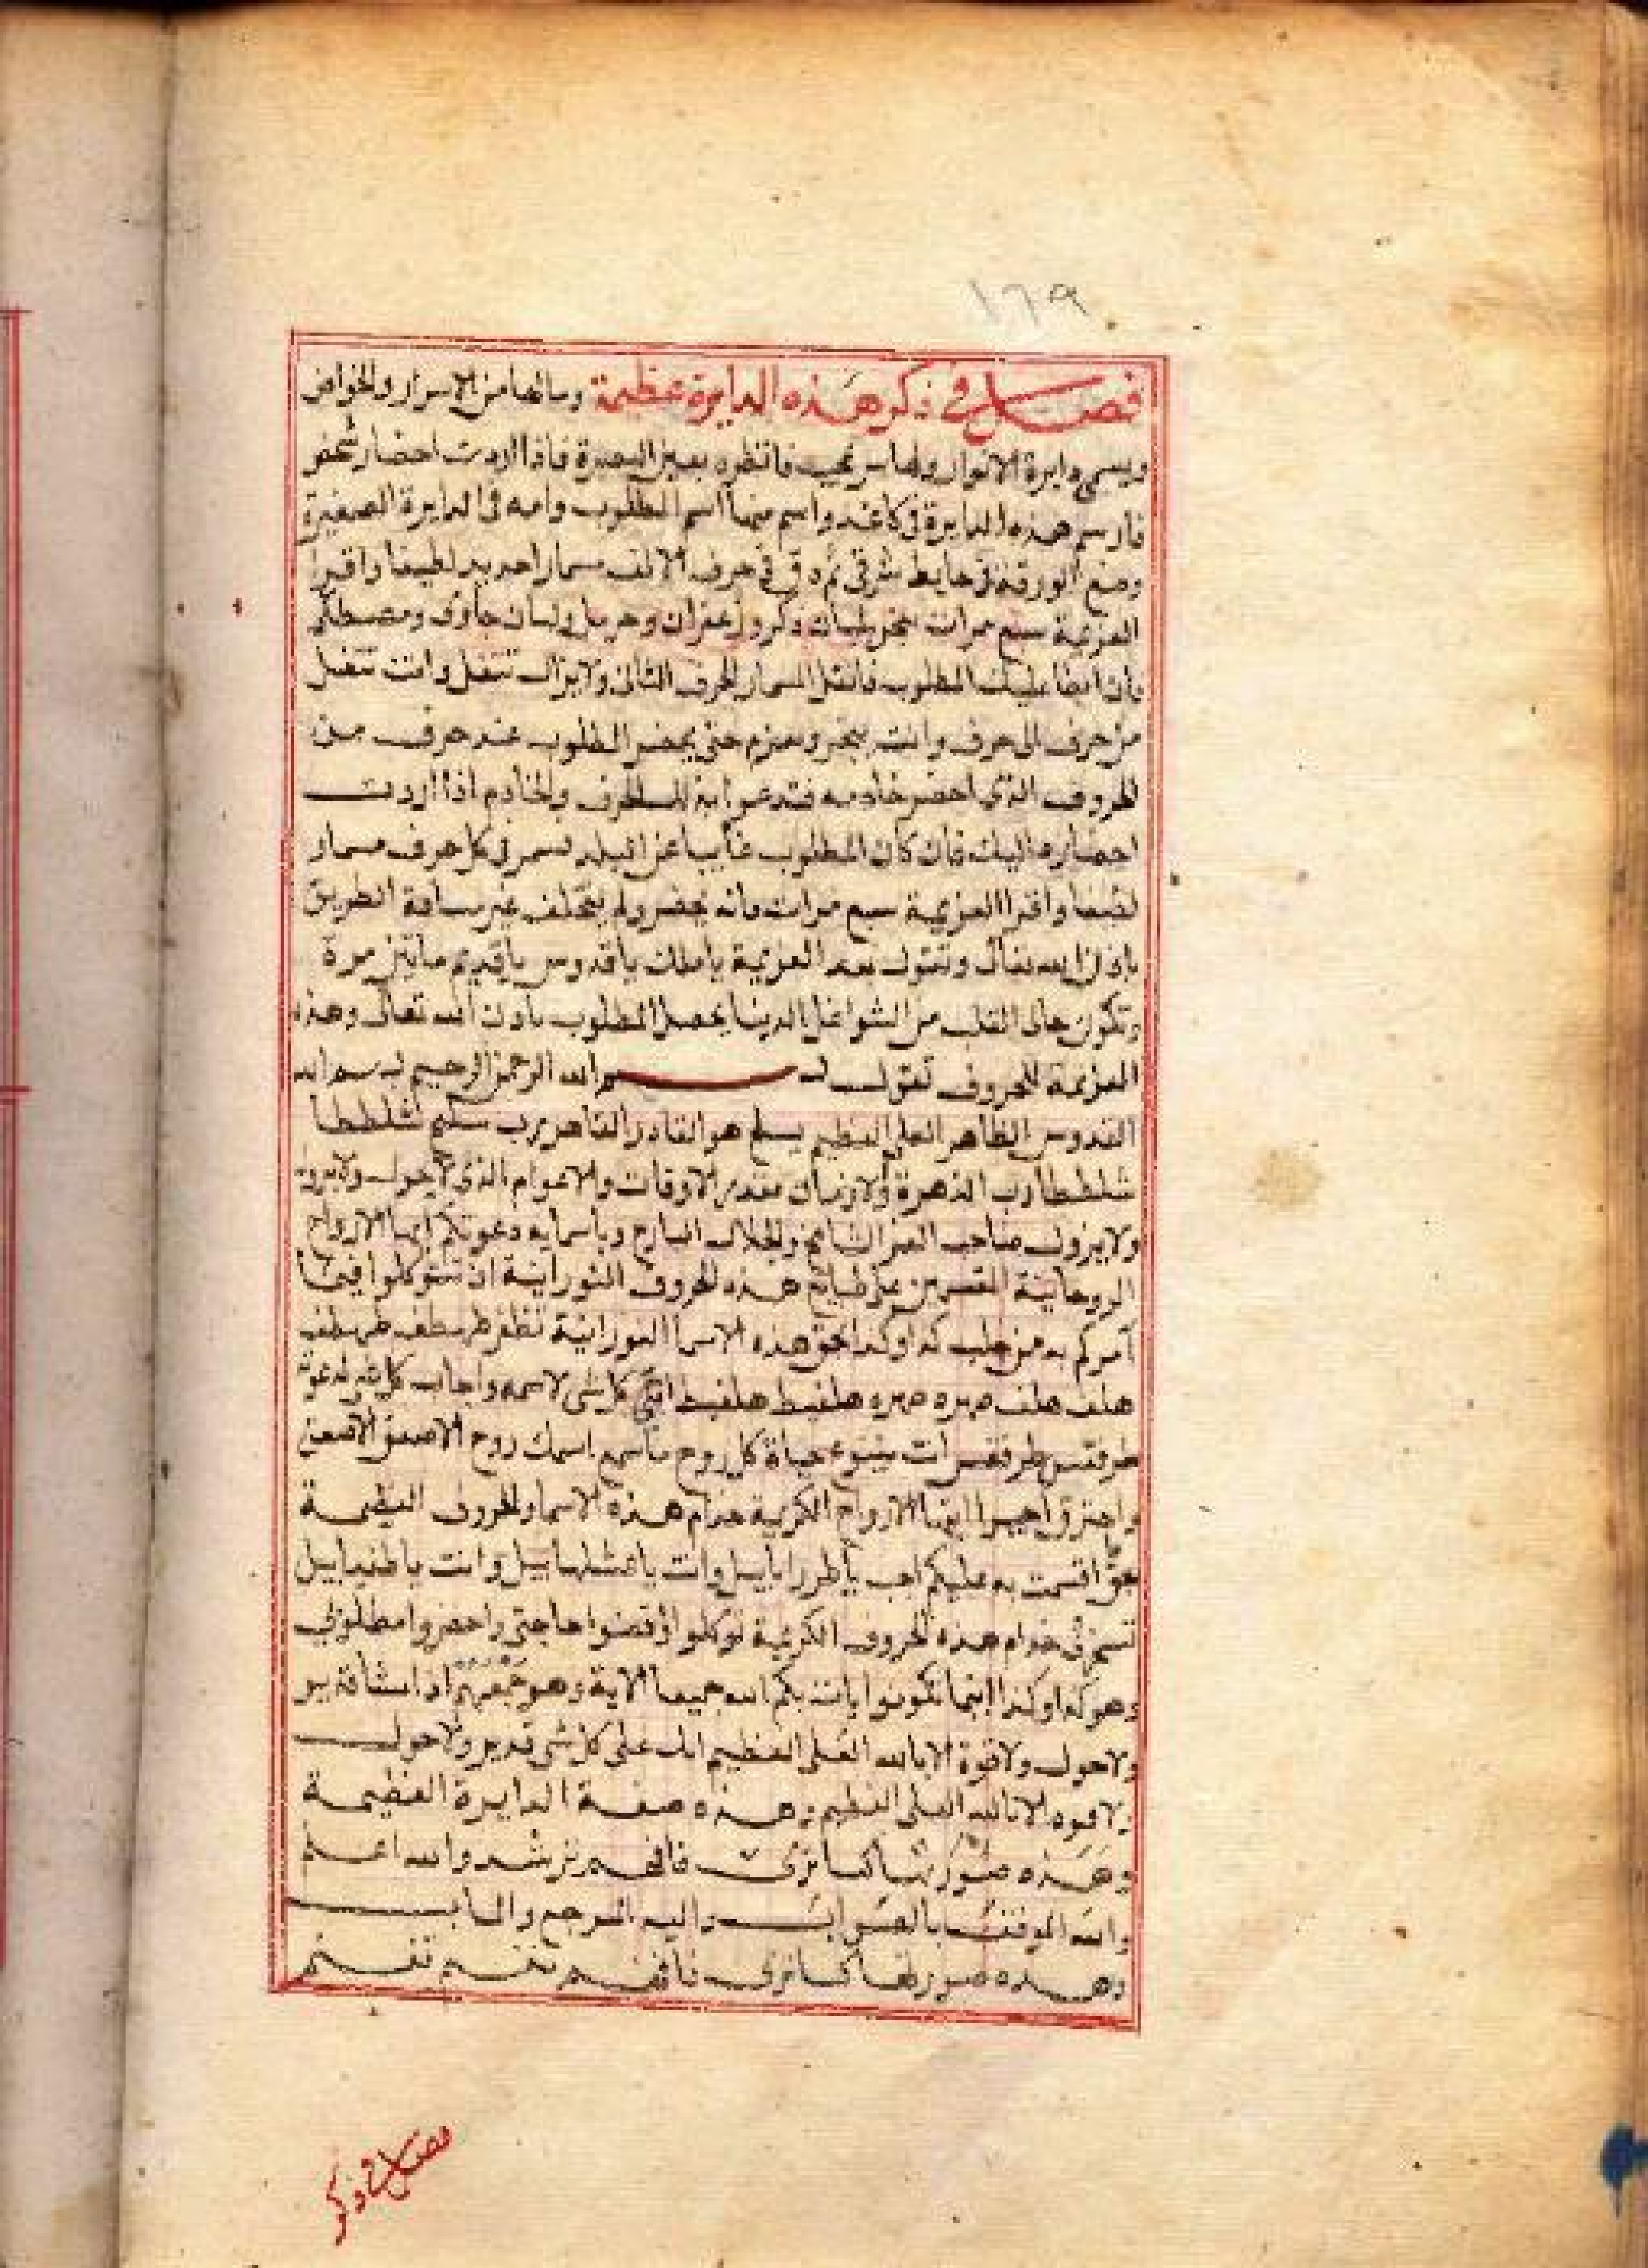 ١٦٩
فصل في ذكر هذه الدايرة عظيمة وما لها من الاسرار والخواص
ويسمى دايرة الانوار ولها سر عجيب فانظره بعين البصيرة فاذا اردت احضار شخص
فارسم هذه الدايرة في كاغد واسم منها اسم المطلوب وامه في الدايرة الصغيرة
وضع الورقة في حايط شرقي ثم دق في حرف الالف مسمار احديد لطيفا واقرا
العزيمة سبع مرات بخر بلبان ذكر وزعفران وحرمل ولبان جاوى ومصطكى
فان ابطا عليك المطلوب فانقل المسمار للحرف الثانى ولايزال تنتقل وانت تنتقل
من حرف الى حرف وانت تبخر وتعزم حتى يحضر المطلوب عند حرف من
الحروف الذى احضر خادمه فتدعوا بذلك الحرف والخادم اذا اردت
احضاره اليك فان كان المطلوب غايبا عن البلد تسمر في كل حرف مسمار
لطيفا واقرا العزيمة سبع مرات فانه يحضر ولم يتخلف غير مسافة الطريق
باذن الله تعالى وتقول بعد العزيمة ياملك ياقدوس ياقديم مايتين مرة
وتكون خالى القلب من الشواغل الدينا يحصل المطلوب باذن الله تعالى وهذه
العزيمة للحروف تقول بسم الله الرحمن الرحيم بسم الله
القدوس الظاهر العلى العظيم هو القادر القاهر رب شلطط
شلططا رب الدهرة والازمان مقدر الاوقات والاعوام الذى لايحول ولايزول
ولايزول صاحب العز الشامخ والجلال الباذخ وباسمايه دعوتكم ايها الارواح
الروحانية من طبايع هذه الحروف النورانية ان تتوكلوا فيما
آمركم به من جلب كذا وكذا بحق هذه الاسما النورانية
هلف هلف مهره مهره هلفيط هلفيط كل شى لاسمه واجاب كل شى لدعوته
انت ينبوع حياة كل روح ماسمع اسمك روح الاصعق
واحترق اجيبوا ايتها الارواح الكريمة خدام هذه الاسما والحروف العظيمة
بحق اقسمت به عليكم اجب وانت وانت
خدام هذه الحروف الكريمة توكلوا واقضوا حاجتى واحضروا مطلوبى
وهو كذا وكذا اينما تكونوا يات بكم الله جميعا الاية وهو على جمعهم اذا يشا قدير
ولاحول ولاقوة الا بالله العلى العظيم انك على كل شى قدير ولاحول
ولاقوه الا بالله العلى العظيم وهذه صفة الدايرة العظيمة
وهذه صورتها كما ترى فافهم ترشد والله اعلم
والله الموفق بالصواب واليه المرجع والماب
وهذه صورتها كما ترى فافهم تغنم
فصل في ذكر